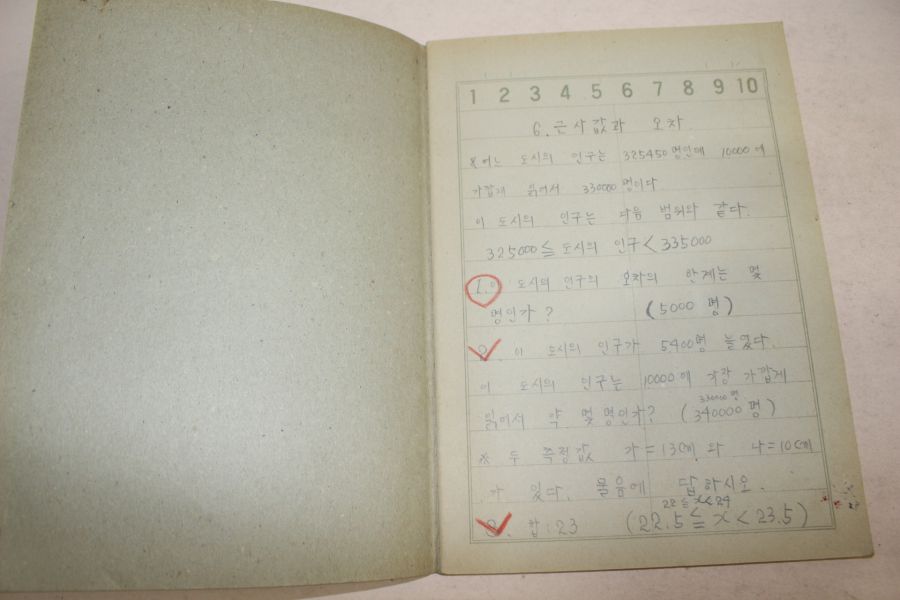 1 2 3 4 5 6 7 8 9 10
6. 근사값과 오차
※어느 도시의 인구는 325450명인데 10000에
가깝게 읽어서 330000명이다
이 도시의 인구는 다음 범위와 같다.
325000≦도시의 인구<335000
1. 이 도시의 인구의 오차의 한계는 몇
명인가? (5000 명)
2. 이 도시의 인구가 5400명 늘었다.
이 도시의 인구는 10000에 가장 가깝게
330000 명
읽어서 약 몇 명인가? (340000 명)
※ 두 측정값 가=13cm 와 나=10cm
가 있다. 물음에 답하시오.
22≦x<24
합:23 (22.5≦x<23.5)